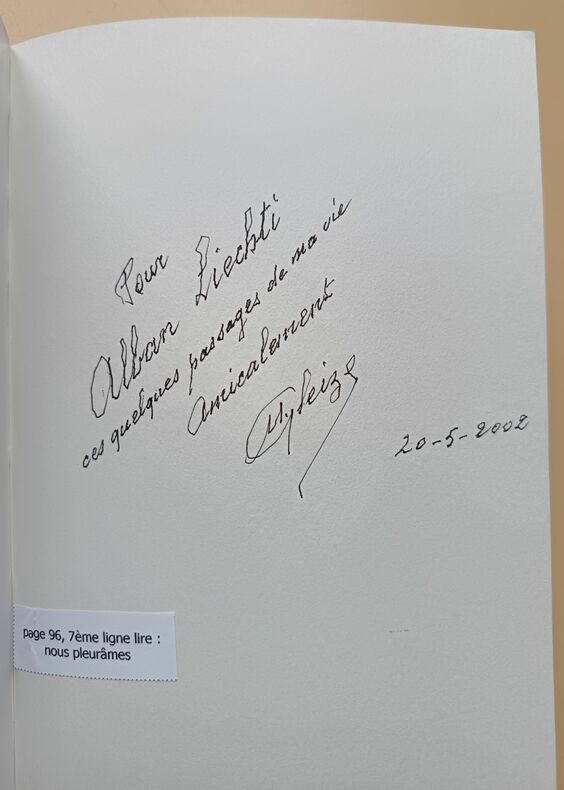 Pour
Alban Liechti
ces quelques passages de ma vie
Amicalement
20-5-2002
page 96, 7ème ligne lire :
nous pleurâmes